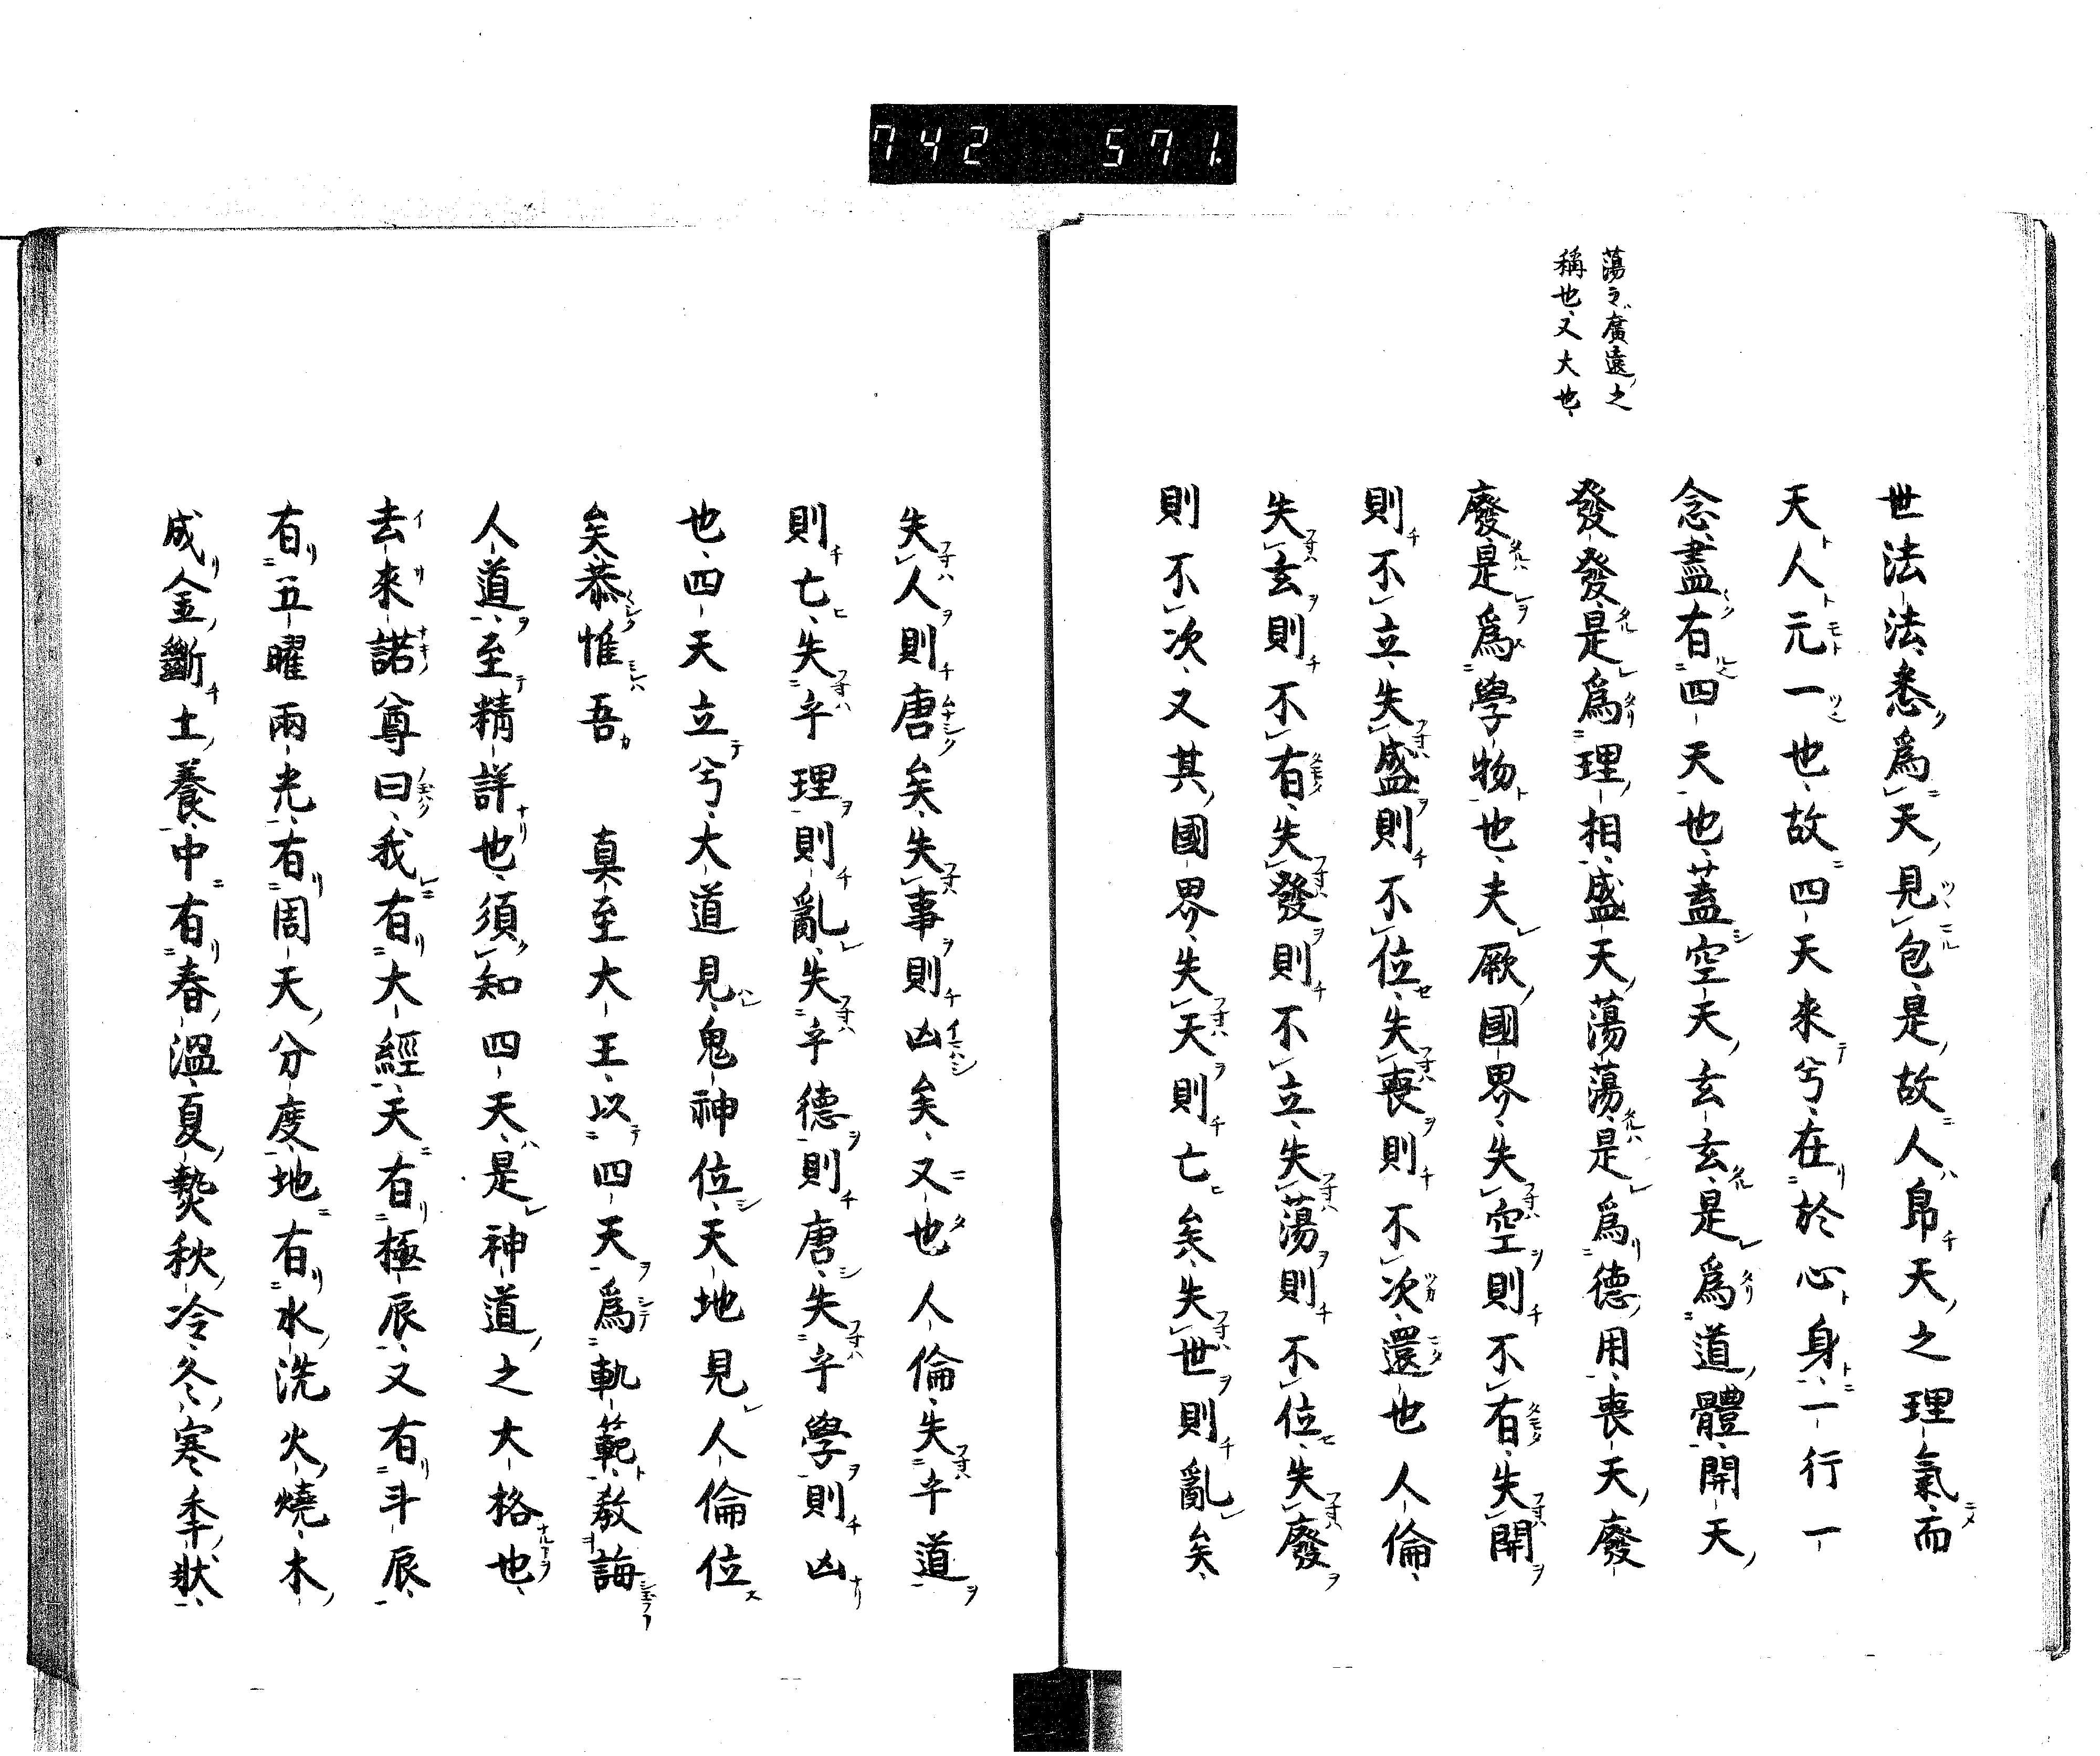 742 571.
蕩々廣遠之
稱也又大也
世法法悉爲天見包是故人帰天之理氣而
天人元一也故四天来兮在於心身一行一
念盡有四天也蓋空天玄玄是爲道體開天
發發是爲理相盛天蕩蕩是爲德用喪天廢
廢是爲學物也夫厥國界失空則不有失開
則不立失盛則不位失喪則不次還也人倫
失玄則不有失發則不立失蕩則不位失廢
則不次又其國界失天則亡矣失世則亂矣
失人則唐矣失事則凶矣又也人倫失乎道
則亡失乎理則亂失乎德則唐失乎學則凶
也四天立兮大道見鬼神位天地見人倫位
矣恭惟吾 真至大王以四天爲軌範教誨
人道至精詳也須知四天是神道之大格也
去來諾尊曰我有大經天有極辰又有斗辰
有五曜兩光有周天分度地有水洗火燒木
成金斷土養中有春溫夏熱秋冷冬寒季狀